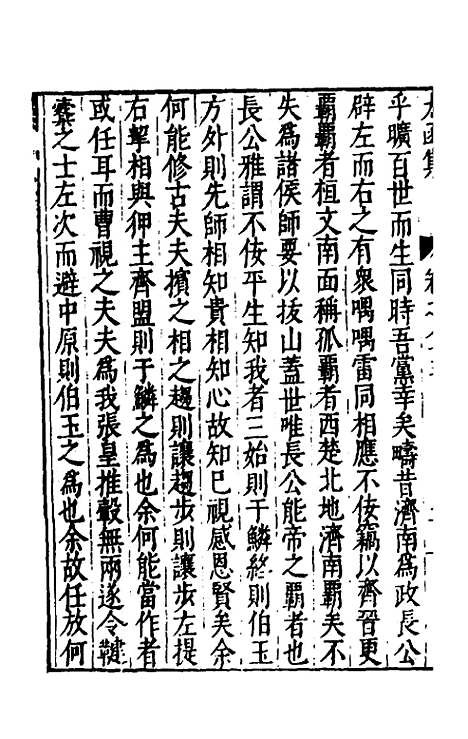 乎曠百世而生同時吾黨幸矣疇昔濟南爲政長公
辟左而右之有衆喁喁雷同相應不佞竊以齊晉更
霸霸者桓文南面稱孤霸者西楚北地濟南霸矣不
失爲諸侯師要以拔山蓋世唯長公能帝之霸者也
長公雅謂不佞平生知我者三始則于鱗終則伯玉
方外則先師相知貴相知心故知已視感恩賢矣余
何能修古夫夫擯之相之趨則讓趨步則讓步左提
右挈相與狎主齊盟則于鱗之爲也余何能當作者
或任耳而曹視之夫夫爲我張皇推轂無兩遂令鞬
櫜之士左次而避中原則伯玉之爲也余故任放何